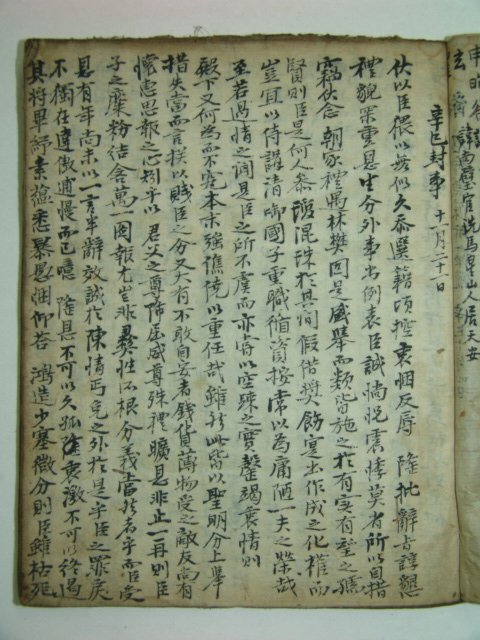 辛巳封事 十一月二十一日
伏以臣猥以無似久忝選籍頃控衷悃反辱 隆批辭旨諄懇
禮貌罙重恩生分外事出例表臣誠惝怳震悸莫省所以自措
竊伏念 朝家禮遇林樊固是盛擧而類皆施之於有實有望之
賢則臣是何人忝 混珠於其間假借奬飾寔出作成之化權而
豈宜以侍講清御國子重職循資按常以為庸陋一夫之榮哉
至若過情之聞是臣之所不虞而亦嘗以空疎之實罄竭衷情則
殿下又何為而不究本末強僬僥以重任哉雖 此皆以聖明分上擧
措失當而言揆以賤臣之分又大有不敢自安者錢貨薄物受之敵反尚有
懷惠思報之心矧乎以 君父之尊降屈威尊殊禮曠恩非止一再則臣
子之糜粉結舍萬一圖報尤豈非彛性所根分義當然者乎而臣受
恩有年尚未以一言半辭效誠於陳情丐免之外於是乎臣之罪戾
不獨在違傲逋慢而已噫 隆恩不可以久孤 衷激不可以終遏
其將畢紓素蘊悉暴愚悃仰答 鴻造少塞微分則臣雖枯死